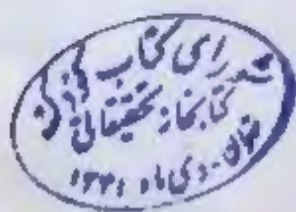 شورای کتاب کودک
کتابخانه تحقیقاتی
تهران - دی ماه ۱۳۴۱